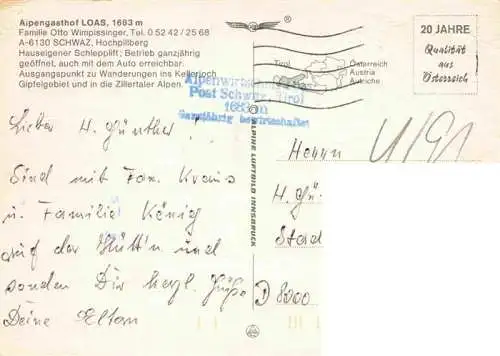 Alpengasthof LOAS, 1683 m
Familie Otto Wimpissinger, Tel. 0 52 42 / 25 68
A-6130 SCHWAZ, Hochpillberg
Hauseigener Schlepplift; Betrieb ganzjährig
geöffnet, auch mit dem Auto erreichbar.
Ausgangspunkt zu Wanderungen ins Kellerjoch
Gipfelgebiet und in die Zillertaler Alpen.
Tirol
Österreich
Austria
Autriche
20 JAHRE
Qualität
aus
Österreich
Post Schwaz, Tirol
1683 m
Ganzjährig bewirtschaftet
ALPINE LUFTBILD INNSBRUCK
Lieber H. Günther!
Sind mit Fam. Kraus
u. Familie König
auf der Hütt'n und
senden Dir herzl. Grüße
Deine Eltern
Herrn
H. Gü
Stad
D 8000